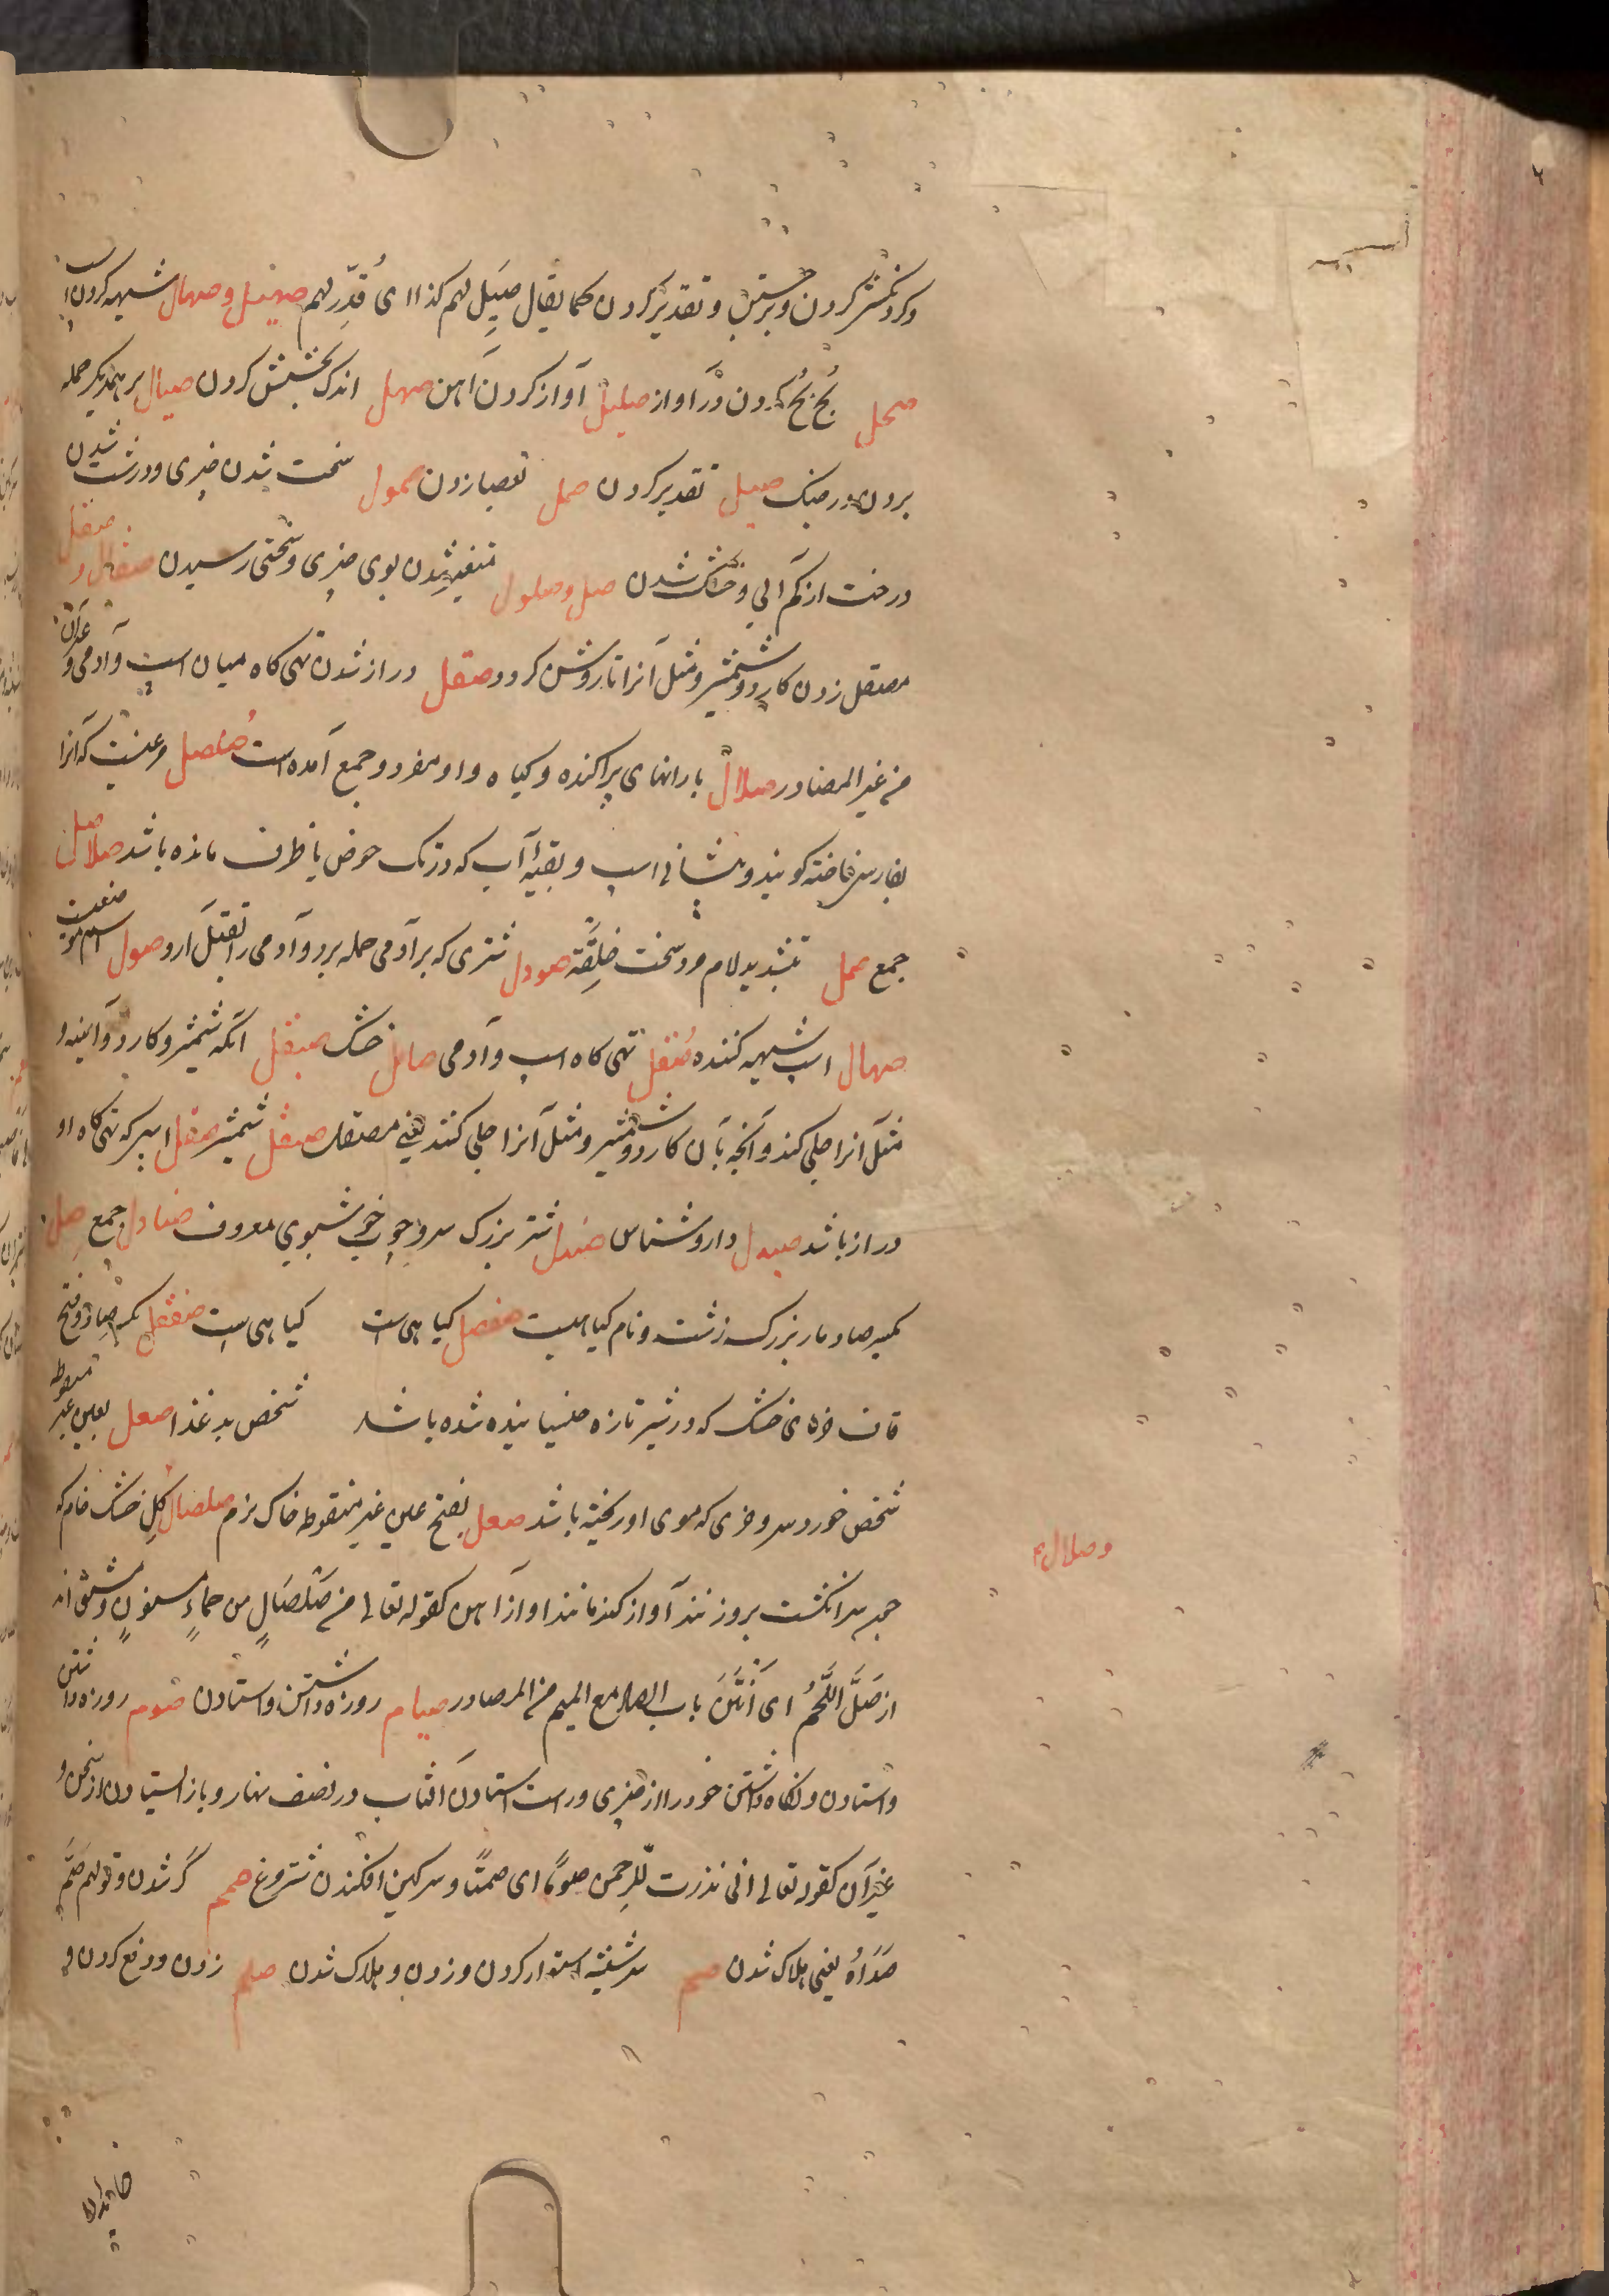 و کردنکش کردن و برجستن و تقدیر کردن کما یقال صیل لهم کذا ای قُدِّر لهم صهیل و صهال شیهه کردن اسب
صحل بُحّ بُحّ کردن در آواز صلیل آواز کردن آهن صهل اندک بخشش کردن صیال بر همدیکر حمله
بردن در جنک صیل تقدیر کردن صمل بعصا زدن صمول سخت شدن چیزی و درشت شدن
درخت از کم آبی و خشک شدن صل و صلول متغیر شدن بوی چیزی و سختی رسیدن صقال و صقل
مصقل زدن کارد و شمشیر و مثل آنرا تا روشن کردد صقل دراز شدن تهی کاه میان اسب و آدمی و غیر آن
من غیر المصادر صلال بارانهای پراکنده و کیاه و او مفرد و جمع آمده است صلصل مرغیست که آنرا
بفارسی فاخته کویند و پیشانی اسب و بقیهٔ آب که در تک حوض یا ظرف مانده باشد صلاصل
جمع صمل بتشدید لام مرد سخت خلقة صودل شتری که بر آدمی حمله برد و آدمی را بقتل آرد صول اسم موضعیست
صهال اسب شیهه کننده صقل تهی کاه اسب و آدمی صامل خشک صیقل آنکه شمشیر و کارد و آینه و
مثل آنرا جلی کند و آنچه بآن کارد و شمشیر و مثل آنرا جلی کنند یعنی مصقل صیقل شمشیر صقل اسبی که تهی کاه او
دراز باشد صیدل داروشناس صندل شتر بزرک سر و چوب خوشبوی معروف صنادل جمع صل
بکسر صاد مار بزرک زشت و نام کیاهیست صفصل کیاهی است کیاهی است صفقل بکسر صاد و فتح
قاف خرمای خشک که در شیر تازه خیسانیده شده باشد شخص بد غذا صعل بعین غیر منقوطه
شخص خورد سر و خری که موی او ریخته باشد صعل بفتح عین غیر منقوطه خاک نرم صلصال کل خشک خام که
وصلال
چون سر انکشت برو زنند آواز کند مانند آواز آهن کقوله تعالی من صَلْصَالٍ من حماءٍ مسنونٍ و مشتق اند
از صَلَّ اللَّحْمُ ای أَنْتَنَ باب الصاد مع المیم من المصادر صیام روزه داشتن و استادن صوم روزه داشتن
و استادن و نکاه داشتن خود را از چیزی و راست استادن آفتاب در نصف نهار و باز ایستادن از سخن و
غیر آن کقوله تعالی انی نذرت للرحمن صومًا ای صمتًا و سرکین افکندن شتر مرغ صمم کر شدن و قولهم صَمَّ
صَدَاهُ یعنی هلاک شدن صم سر شیشه استوار کردن و زدن و هلاک شدن صلم زدن و دفع کردن و